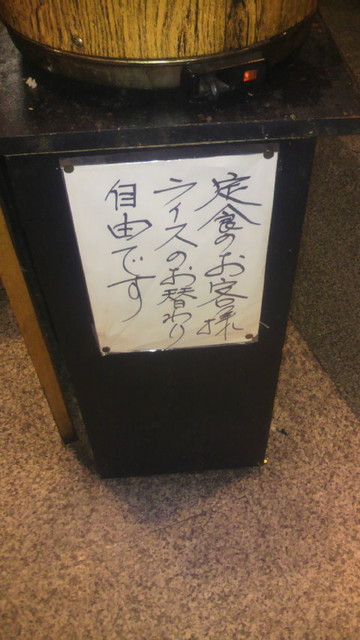 定食のお客様
ライスのお替わり
自由です